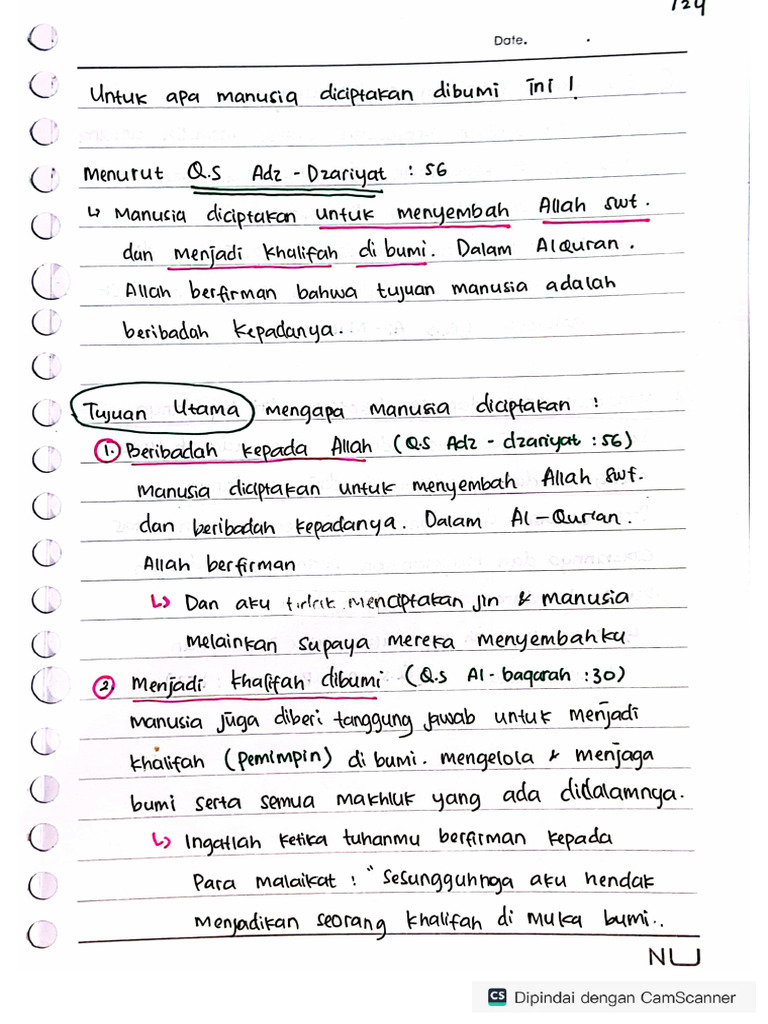 124
Date. .
Untuk apa manusia diciptakan dibumi ini !
Menurut Q.S Adz - Dzariyat : 56
↳ Manusia diciptakan untuk menyembah Allah swt.
dan menjadi khalifah di bumi. Dalam AlQuran.
Allah berfirman bahwa tujuan manusia adalah
beribadah kepadanya.
Tujuan Utama mengapa manusia diciptakan :
1. Beribadah kepada Allah (Q.S Adz - dzariyat : 56)
manusia diciptakan untuk menyembah Allah swt.
dan beribadah kepadanya. Dalam Al-Qur'an.
Allah berfirman
↳ Dan aku menciptakan jin & manusia
melainkan supaya mereka menyembahku
2. Menjadi khalifah dibumi (Q.S Al-baqarah :30)
manusia juga diberi tanggung jawab untuk menjadi
khalifah (pemimpin) di bumi. mengelola & menjaga
bumi serta semua makhluk yang ada didalamnya.
↳ Ingatlah ketika tuhanmu berfirman kepada
Para malaikat : "Sesungguhnga aku hendak
menjadikan seorang khalifah di muka bumi..
NU
CS Dipindai dengan CamScanner